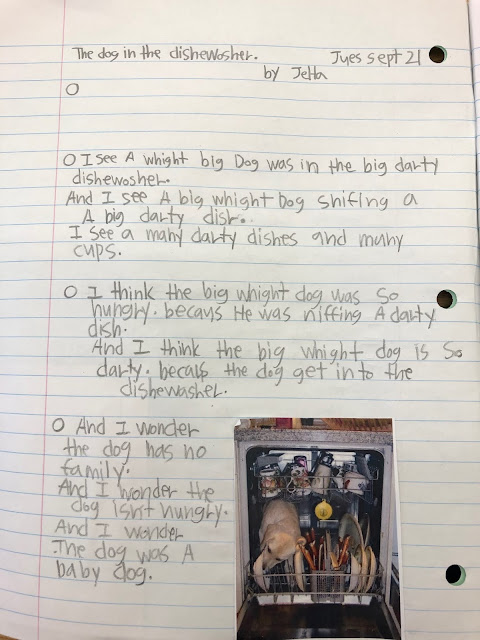 The dog in the dishewosher. Jyes sept 21
by Jetta
O
O I see A whight big Dog was in the big darty
dishewosher.
And I see A big whight Dog snifing a
A big darty dish.
I see a many darty dishes and many
cups.
O I think the big whight dog was so
hungry. becays He was niffing A darty
dish.
And I think the big whight dog is so
darty. becays the dog get in to the
dishewasher.
O And I wonder
the dog has no
family.
And I wonder the
dog isnt hungry.
And I wonder
.The dog was A
baby dog.